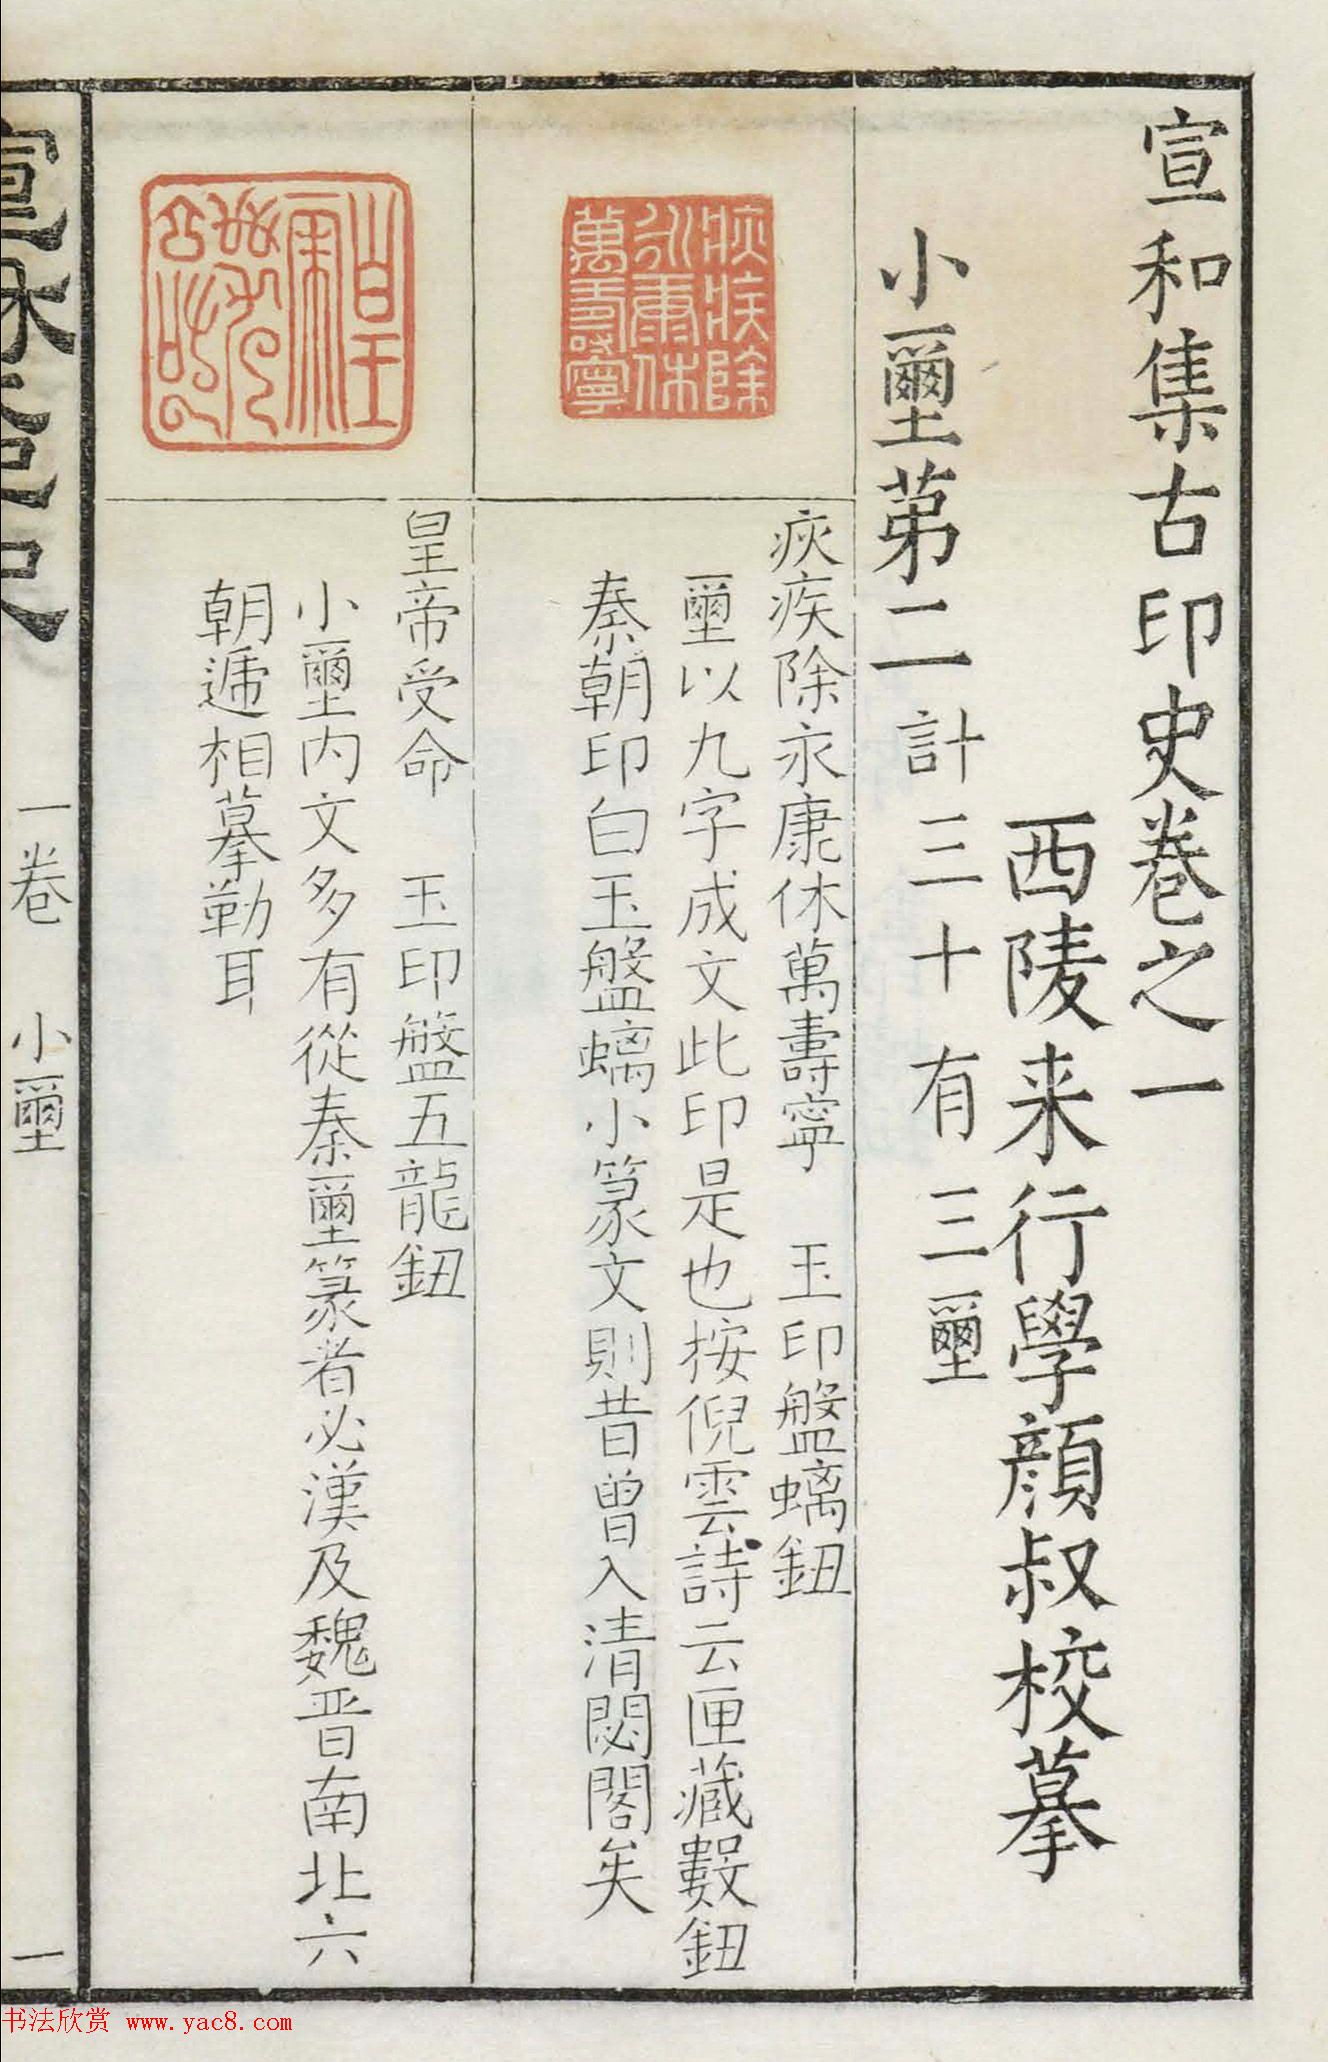 宣和集古印史卷之一
西陵来行學顔叔校摹
小璽第二計三十有三璽
疢疾除永康休萬壽寧
疢疾除永康休萬壽寧 玉印盤螭鈕
璽以九字成文此印是也按倪雲詩云匣藏數鈕
秦朝印白玉盤螭小篆文則昔曾入清閟閣矣
皇帝受命
皇帝受命 玉印盤五龍鈕
小璽内文多有從秦璽篆者必漢及魏晋南北六
朝遞相摹勒耳
一卷 小璽 一
书法欣赏 www.yac8.com